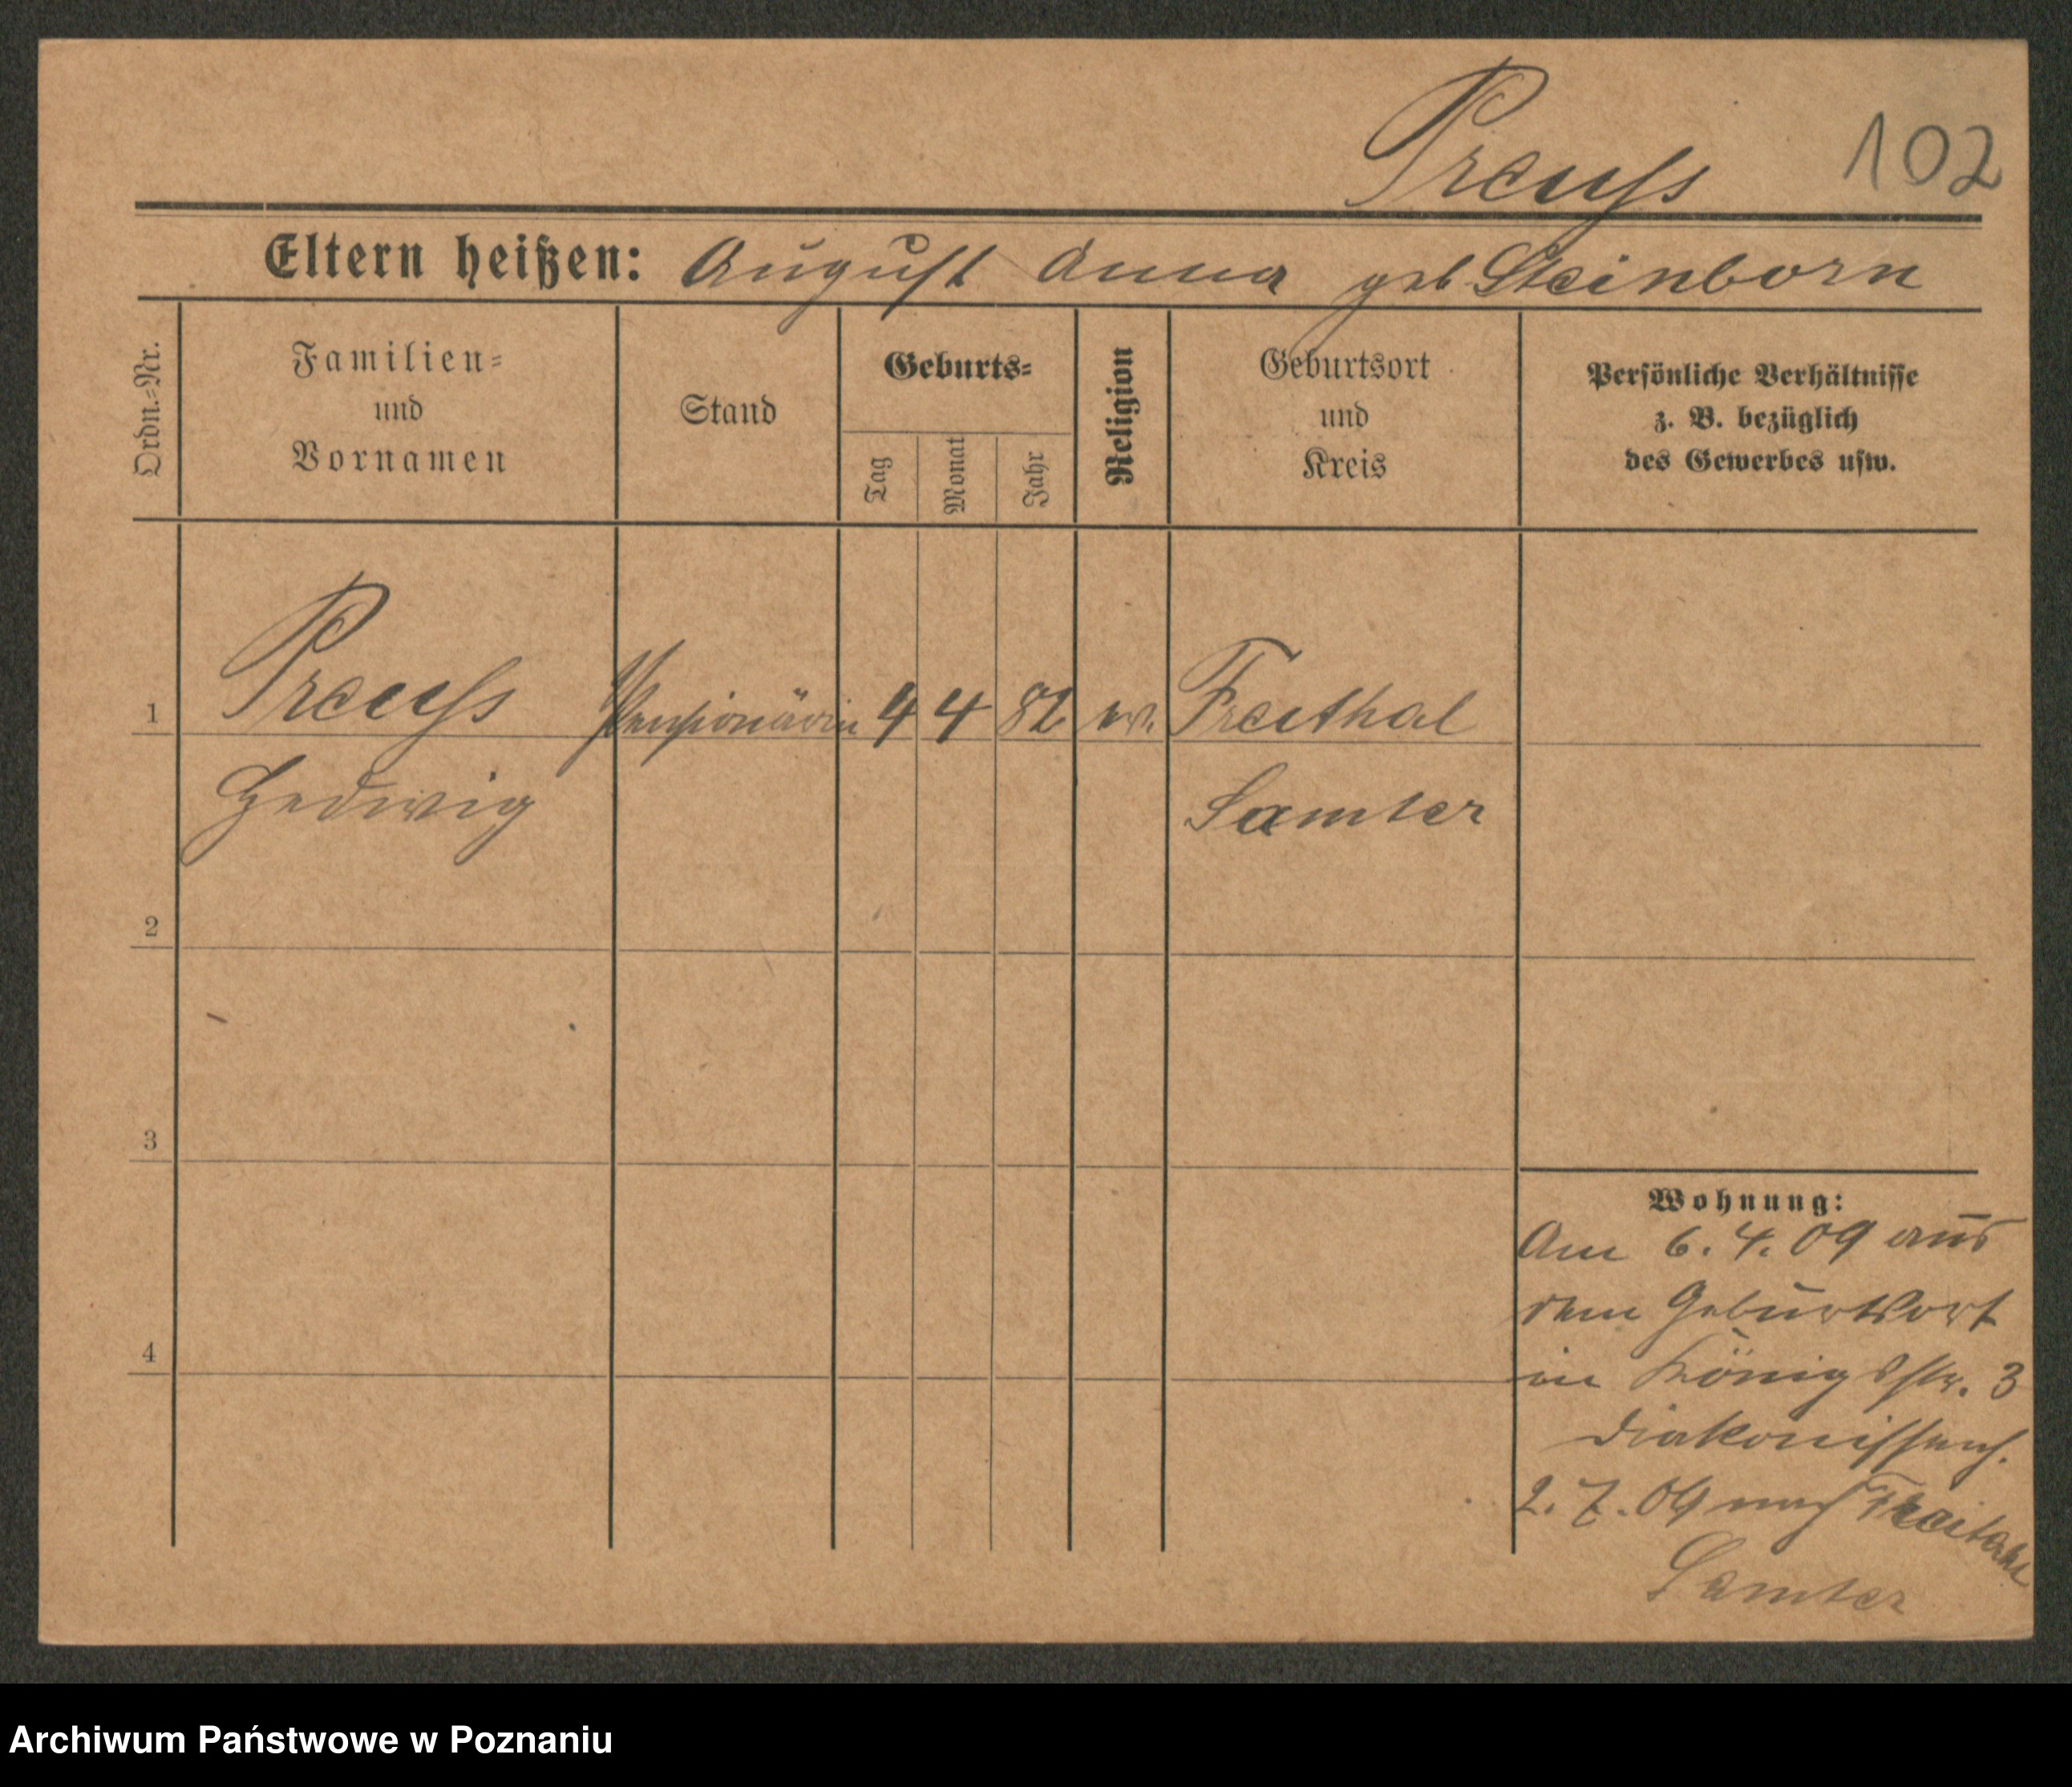 Preuss 102
Eltern heißen: August Anna geb Steinborn
Ordn.-Nr.
Familien-
und
Vornamen
Stand
Geburts-
Tag
Monat
Jahr
Religion
Geburtsort
und
Kreis
Persönliche Verhältnisse
z. B. bezüglich
des Gewerbes usw.
1 Preuss Pensionärin 4 4 82 ev. Freithal
Hedwig Samter
2
3
4
Wohnung:
Am 6. 4. 09 aus
dem Geburtsort
in Königsstr. 3
Diakonissenh.
2. 7. 09 nach
Samter
Archiwum Państwowe w Poznaniu